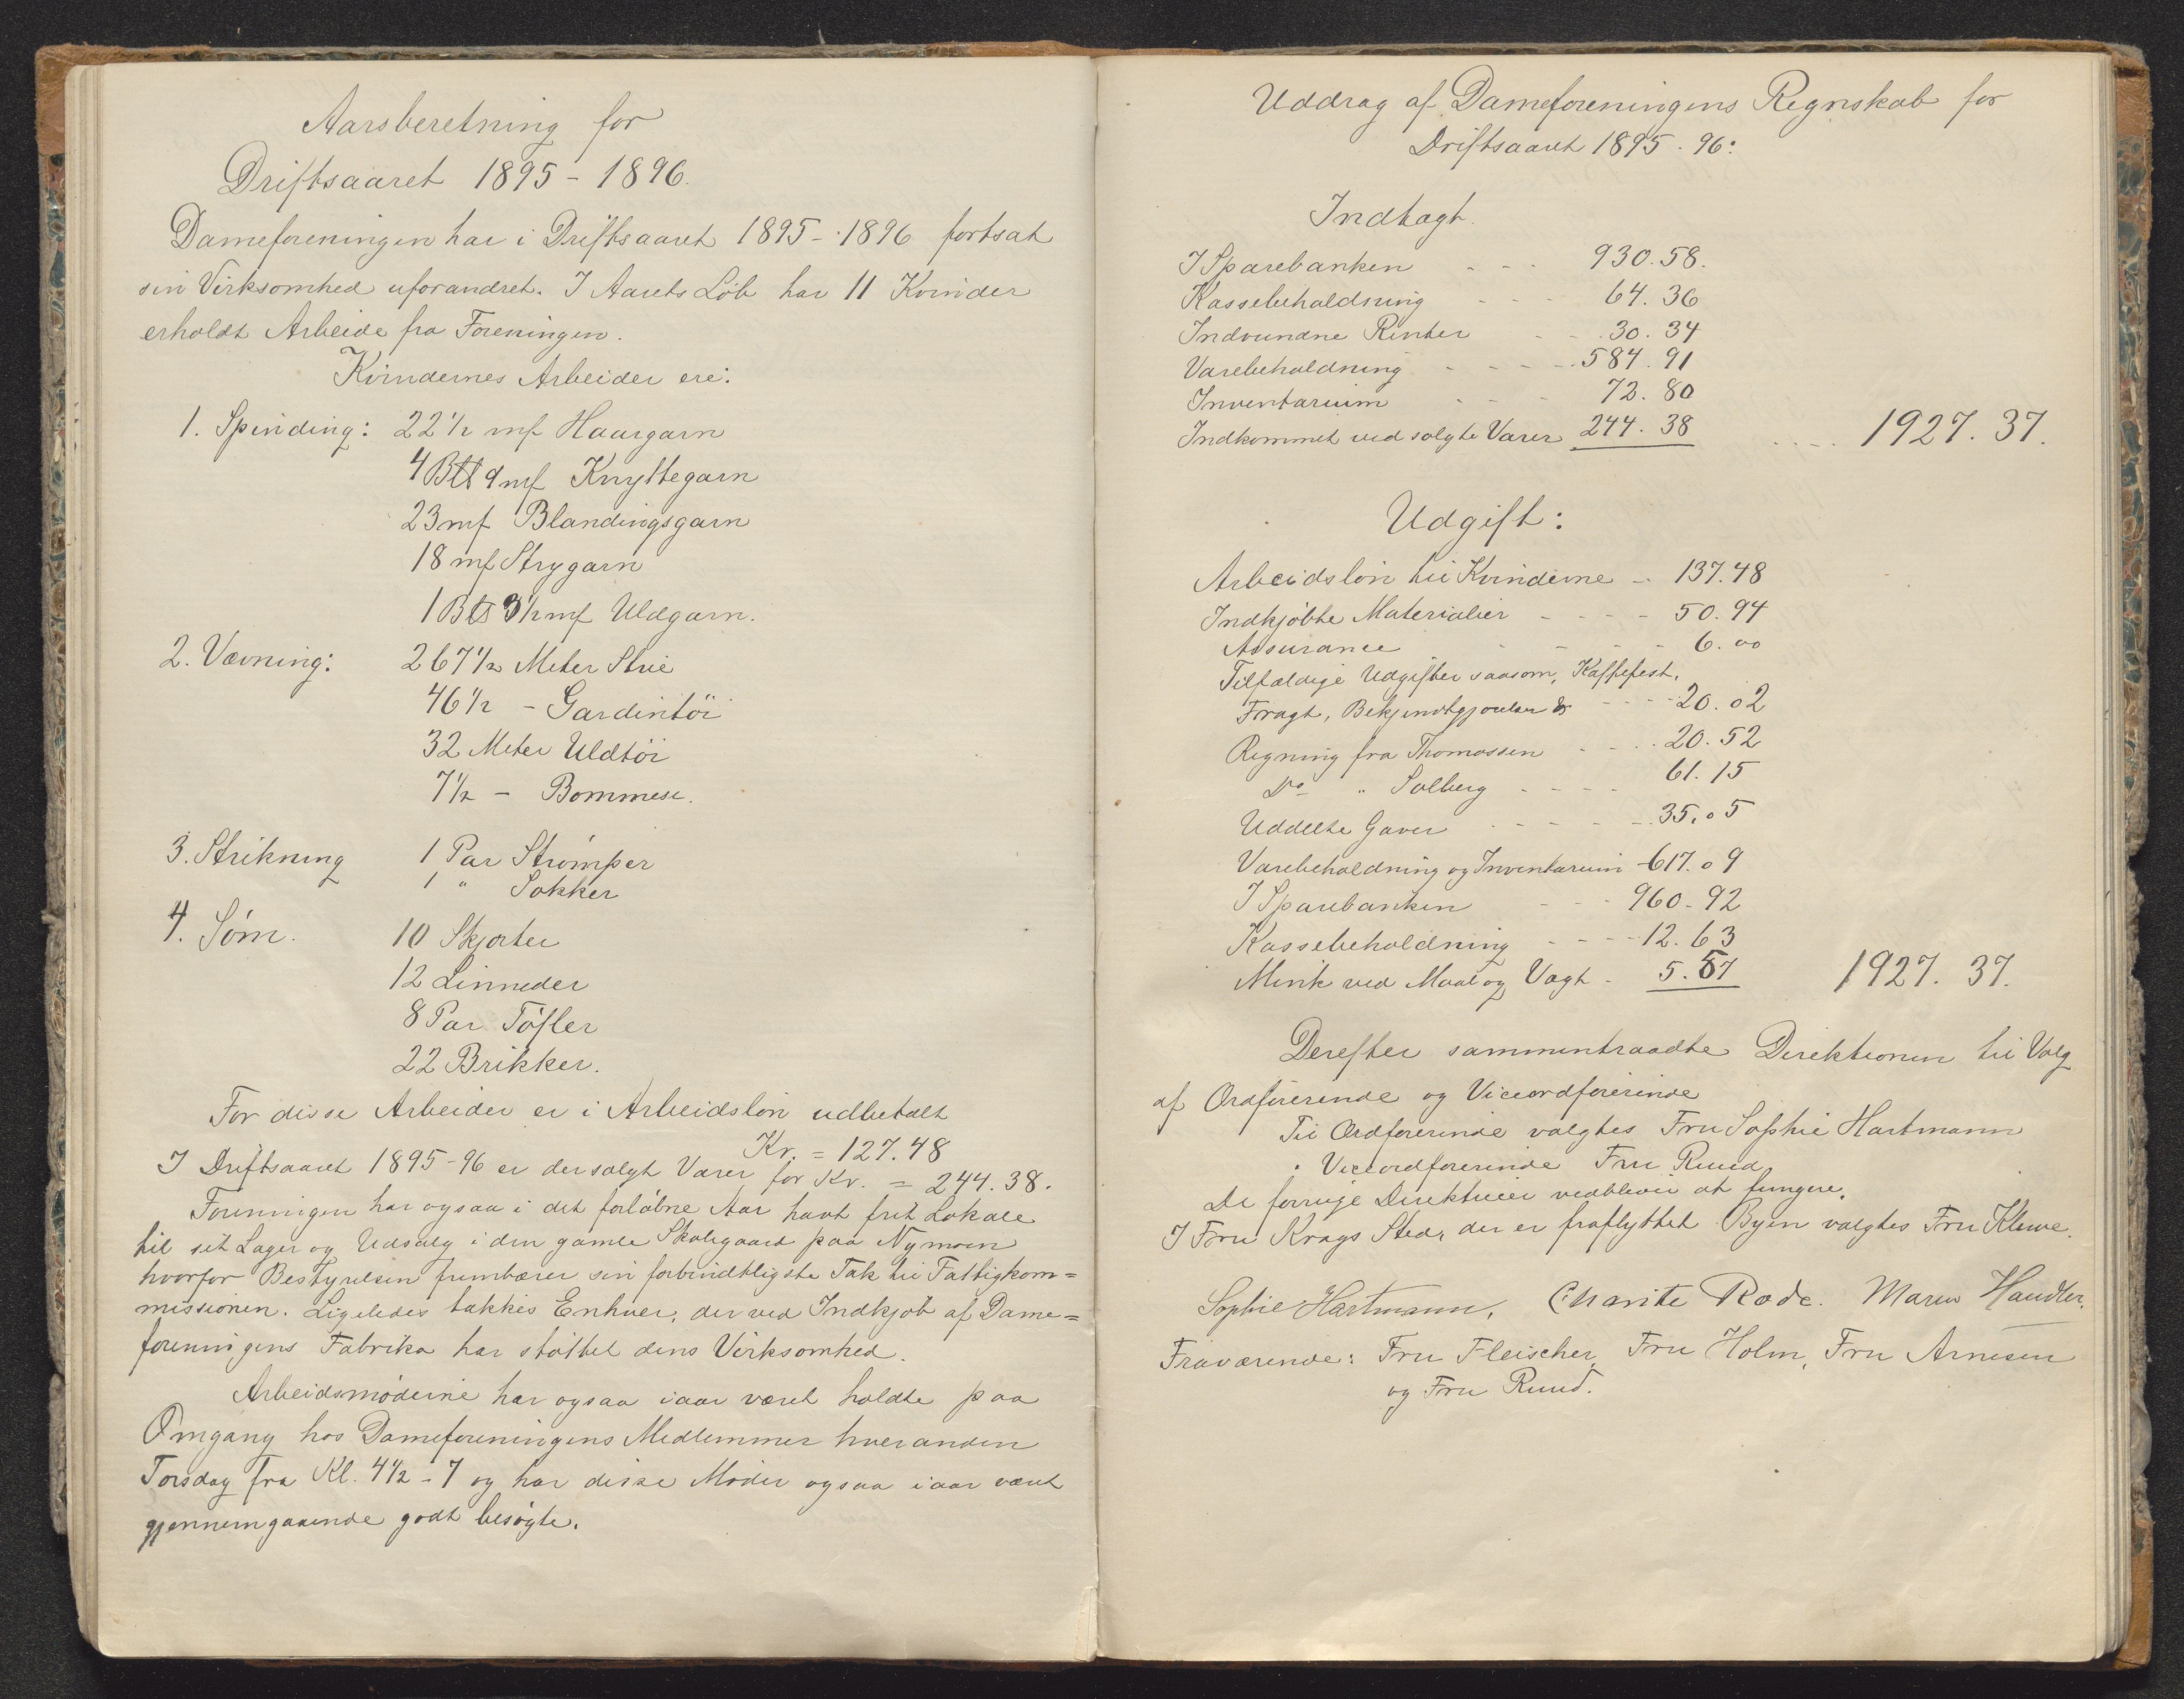 Aarsberetning for
Driftsaaret 1895 - 1896.
Dameforeningen har i Driftsaaret 1895 - 1896 fortsat
sin Virksomhed uforandret. I Aarets Løb har 11 Kvinder
erholdt Arbeide fra Foreningen.
Kvindernes Arbeider ere:
1. Spinding: 22 1/2 mƒ Haargarn
4 Btt 9 mƒ Knyttegarn
23 mƒ Blandingsgarn
18 mƒ Strygarn
1 Btt 3 1/2 mƒ Uldgarn.
2. Vævning: 267 1/2 Meter Strie
46 1/2 - Gardintöi
32 Meter Uldtöi
7 1/2 - Bommesi.
3. Strikning 1 Par Strømper
1 " Sokker
4. Söm. 10 Skjorter
12 Linneder
8 Par Töfler
22 Brikker.
For disse Arbeider er i Arbeidslön udbetalt
Kr. = 127.48
I Driftsaaret 1895-96 er der solgt Varer for Kr. = 244.38.
Foreningen har ogsaa i det forløbne Aar havt frit Lokale
til sit Lager og Udsalg i den gamle Skolegaard paa Nymoen
hvorfor Bestyrelsen frembærer sin forbindtligste Tak til Fattigkom=
missionen. Ligeledes takkes Enhver, der ved Indkjöb af Dame=
foreningens Fabrika har støttet dens Virksomhed.
Arbeidsmöderne har ogsaa iaar været holdte paa
Omgang hos Dameforeningens Medlemmer hveranden
Torsdag fra Kl. 4 1/2 - 7 og har disse Möder ogsaa iaar været
gjennemgaaende godt besøgte.
Uddrag af Dameforeningens Regnskab for
Driftsaaret 1895 - 96:
Indtægt.
I Sparebanken - - - 930.58.
Kassebeholdning - - - 64.36
Indvundne Renter - - 30.34
Varebeholdning - - - - 584.91
Inventarium - - - 72.80
Indkommet ved solgte Varer 244.38 .... 1927.37.
Udgift:
Arbeidslön til Kvinderne - 137.48
Indkjöbte Materialier - - - - 50.94
Assurance - - - - 6.00
Tilfældige Udgifter saasom, Kaffefest,
Fragt, Bekjendtgjørelser &c - - - - 20.02
Regning fra Thomassen - - - - 20.52
Do " Solberg - - - - 61.15
Uddelte Gaver - - - - - 35.05
Varebeholdning og Inventarium - 617.09
I Sparebanken - - - 960.92
Kassebeholdning - - - - 12.63
Mink ved Maal og Vægt - 5.57 1927.37.
Derefter sammentraadte Direktionen til Valg
af Ordförerinde og Viceordförerinde
Til Ordförerinde valgtes Fru Sophie Hartmann
" Viceordförerinde Fru Ruud,
De forrige Direktricer vedblever at fungere.
I Fru Krags Sted, der er fraflyttet Byen valgtes Fru Klewe.
Sophie Hartmann, Charite Rode. Maren Handler.
Fraværende: Fru Fleischer, Fru Holm, Fru Arnesen
og Fru Ruud.